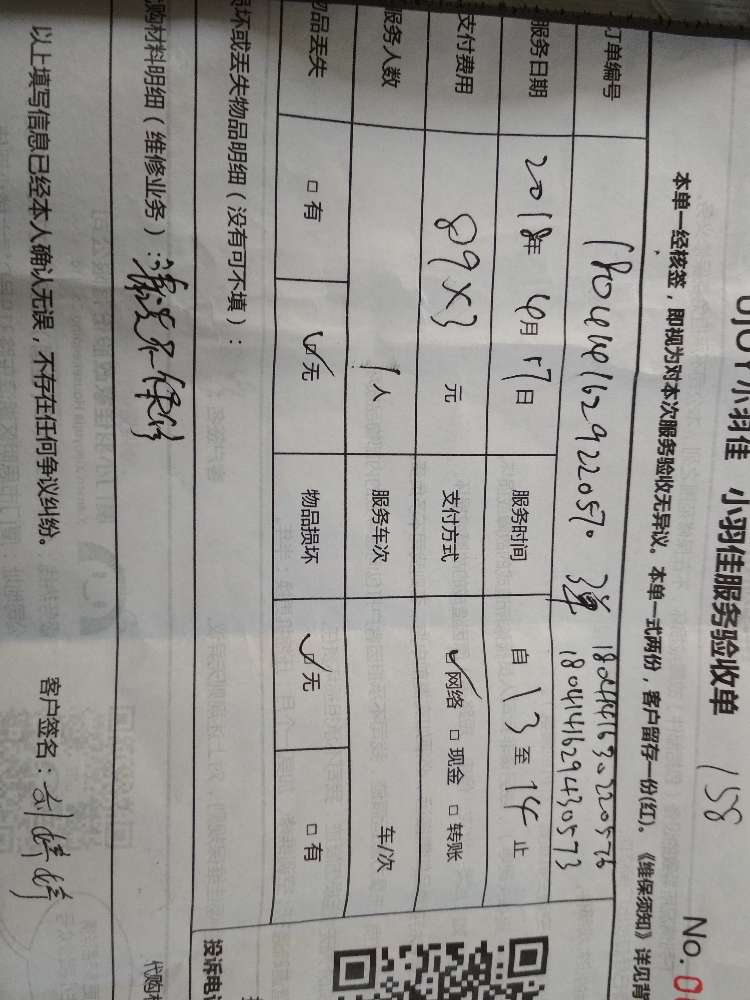 UJOY小羽佳 小羽佳服务验收单 158 No.0
本单一经核签，即视为对本次服务验收无异议。本单一式两份，客户留存一份(红)。《维保须知》详见背
订单编号
服务日期 2018年 4月 17日 服务时间 自 13 至 14 止
支付费用 89×3 元 支付方式 网络 □ 现金 □ 转账
服务人数 1人 服务车次 车/次
物品丢失 □ 有 □ 无 物品损坏 □ 无 □ 有
损坏或丢失物品明细（没有可不填）：
投诉电
代购材料明细（维修业务）：清洗不保修
代购材
以上填写信息已经本人确认无误，不存在任何争议纠纷。 客户签名：刘婷婷